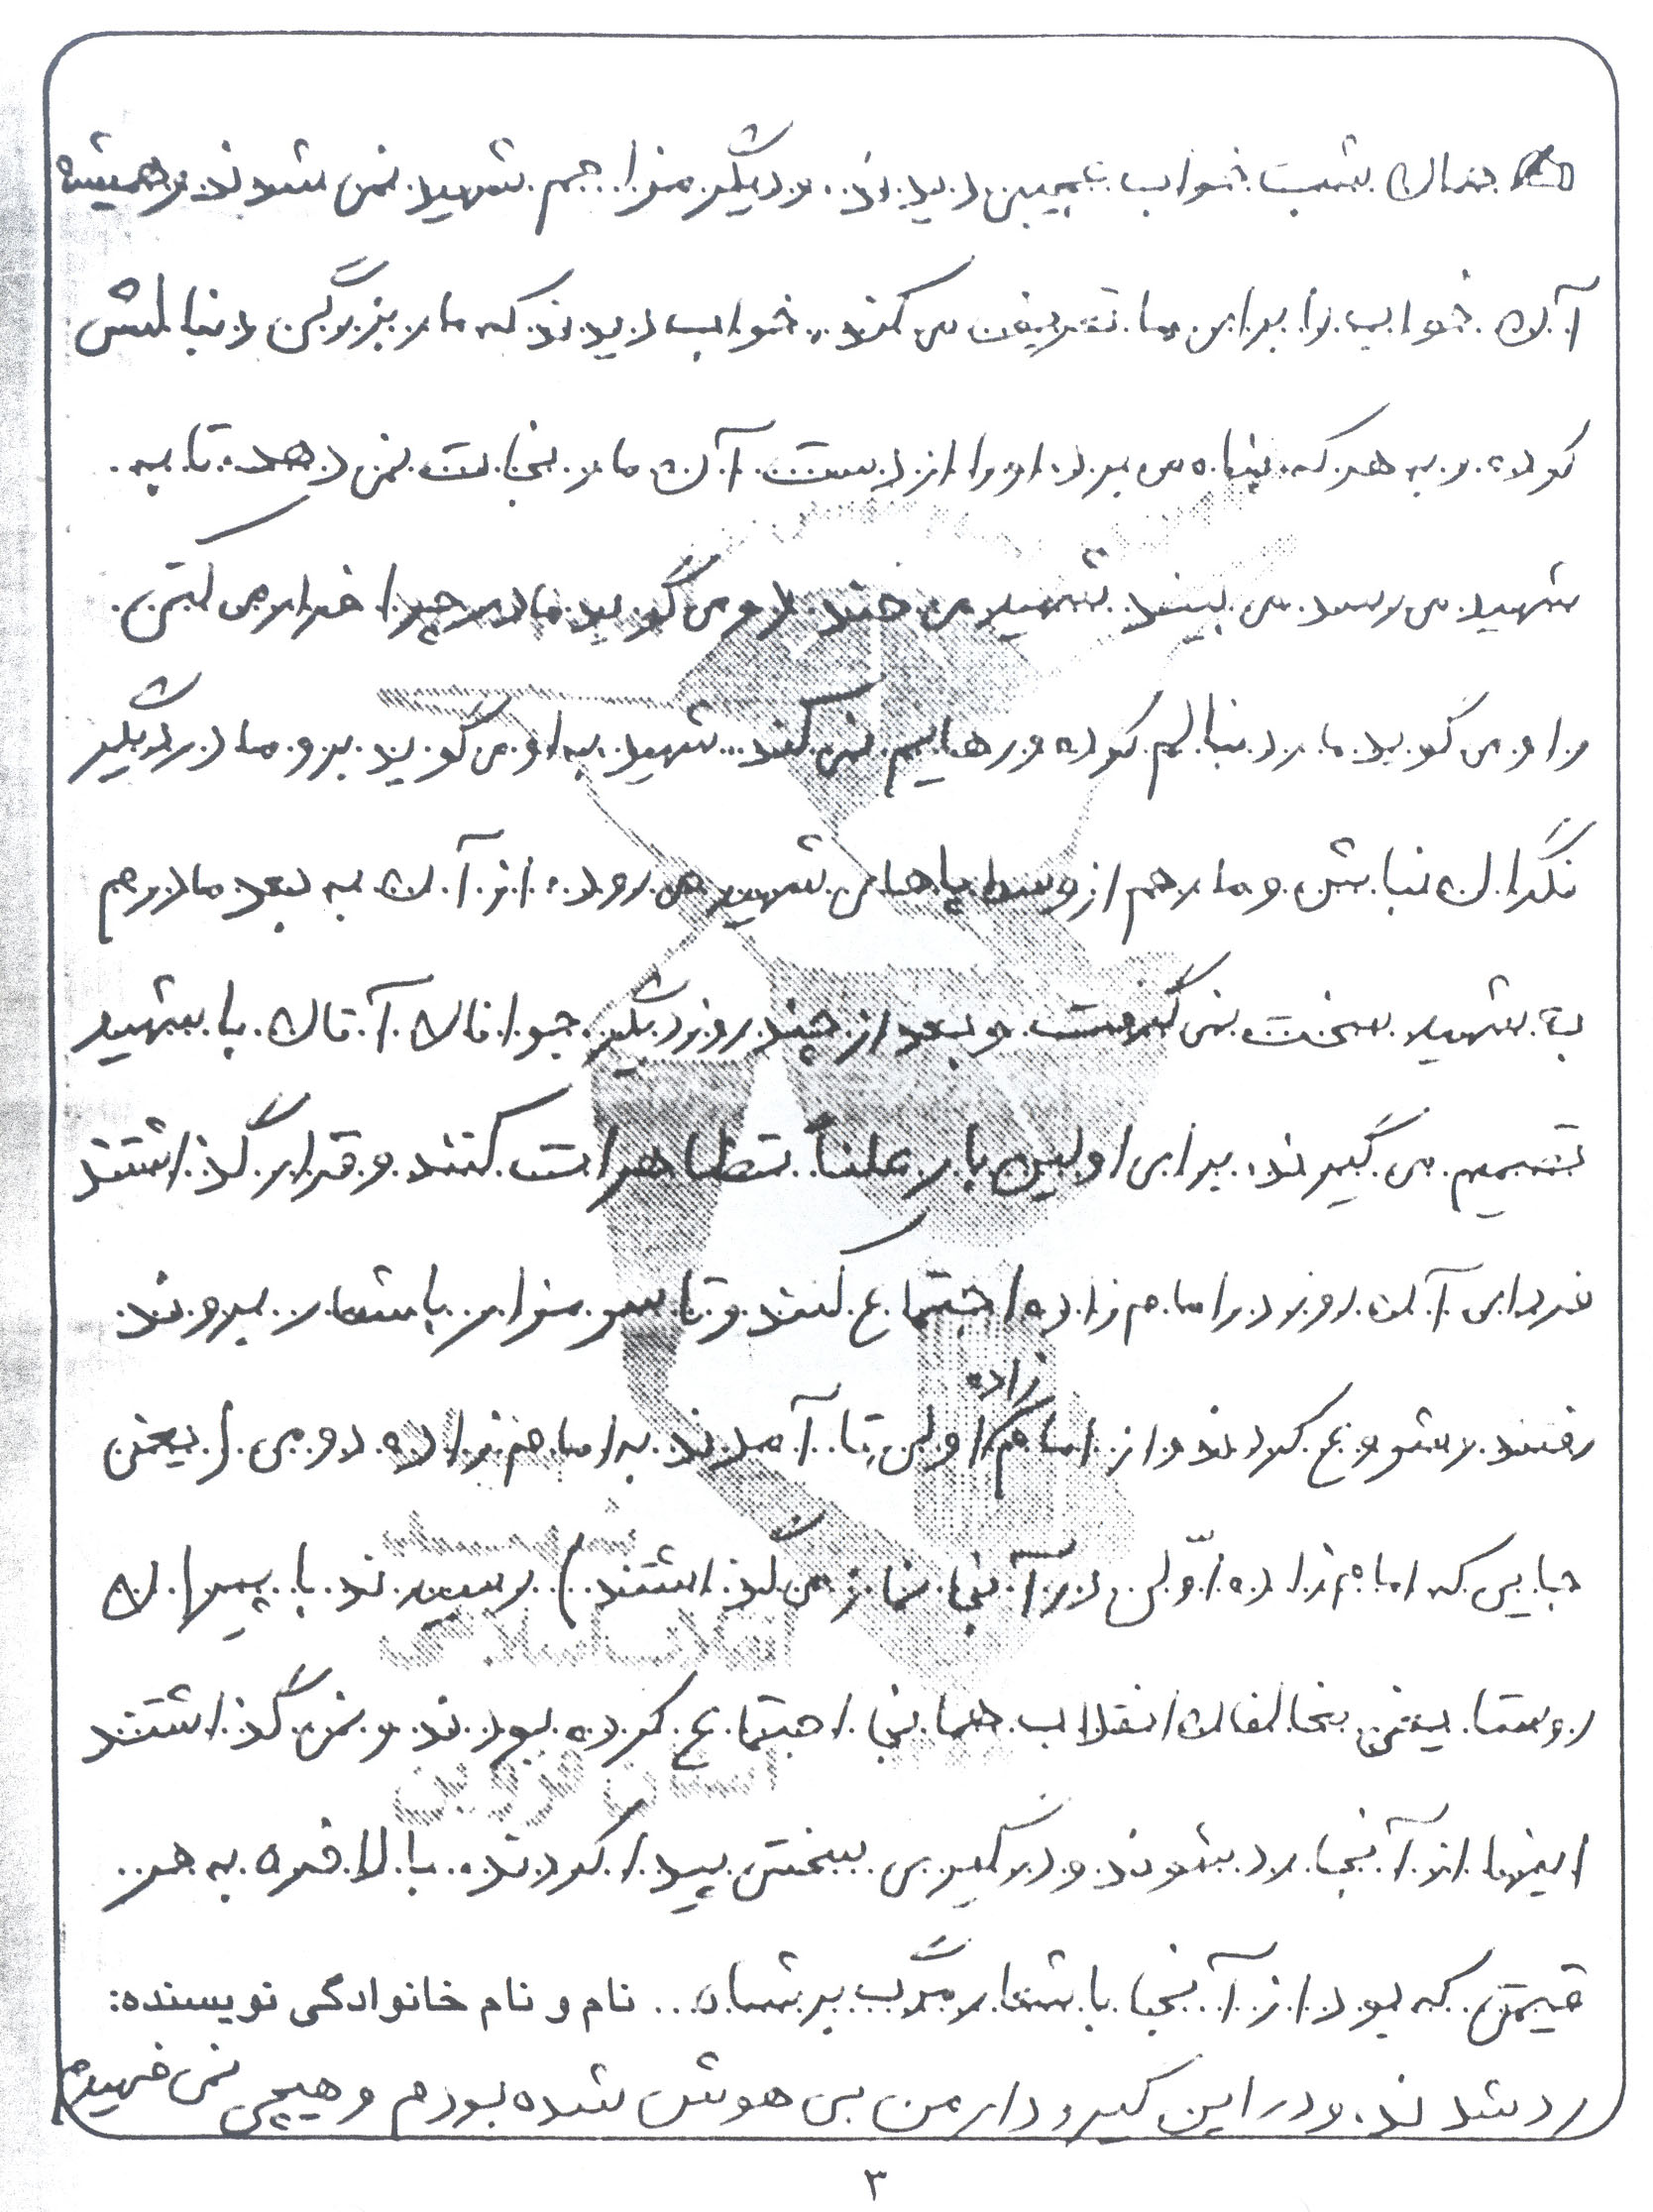 همان شب خواب عجیبی دیدند. و دیگر مزاحم شهید نمی شدند و همیشه
آن خواب را برای ما تعریف می کند. خواب دیدند که مار بزرگی دنبالش
کرده و به هر که پناه می برد او را از دست آن مار نجات نمی دهد. تا به
شهید می رسد. می بیند شهید می خندد و می گوید مادر چرا فرار می کنی
و او می گوید مار دنبالم کرده و رهایم نمی کند. شهید به او می گوید برو مادر دیگر
نگران نباش و مار هم از وسط پاهای شهید می رود. از آن به بعد مادرم
به شهید سخت نمی گرفت و بعد از چند روز دیگر جوانان آنان با شهید
تصمیم می گیرند. برای اولین بار علناً تظاهرات کنند و قرار گذاشتند
فردای آن روز در امام زاده اجتماع کنند و تا سر مزار با شعار بروند
رفتند و شروع کردند و از امام زاده اولی تا آمدند به امام زاده دومی (یعنی
جایی که امام زاده اوّلی در آنجا نماز می گذاشتند) رسیدند با پیران
روستا یعنی مخالفان انقلاب همانجا اجتماع کرده بودند و نمی گذاشتند
اینها از آنجا رد بشوند و درگیری سختی پیدا کردند. بالاخره به هر
قیمتی که بود از آنجا با شعار مرگ بر شاه.. نام و نام خانوادگی نویسنده:
رد شدند. و در این گیر و دار من بی هوش شده بودم و هیچی نمی فهمیدم
شهیدستان
انقلاب اسلامی
استان قزوین
۳